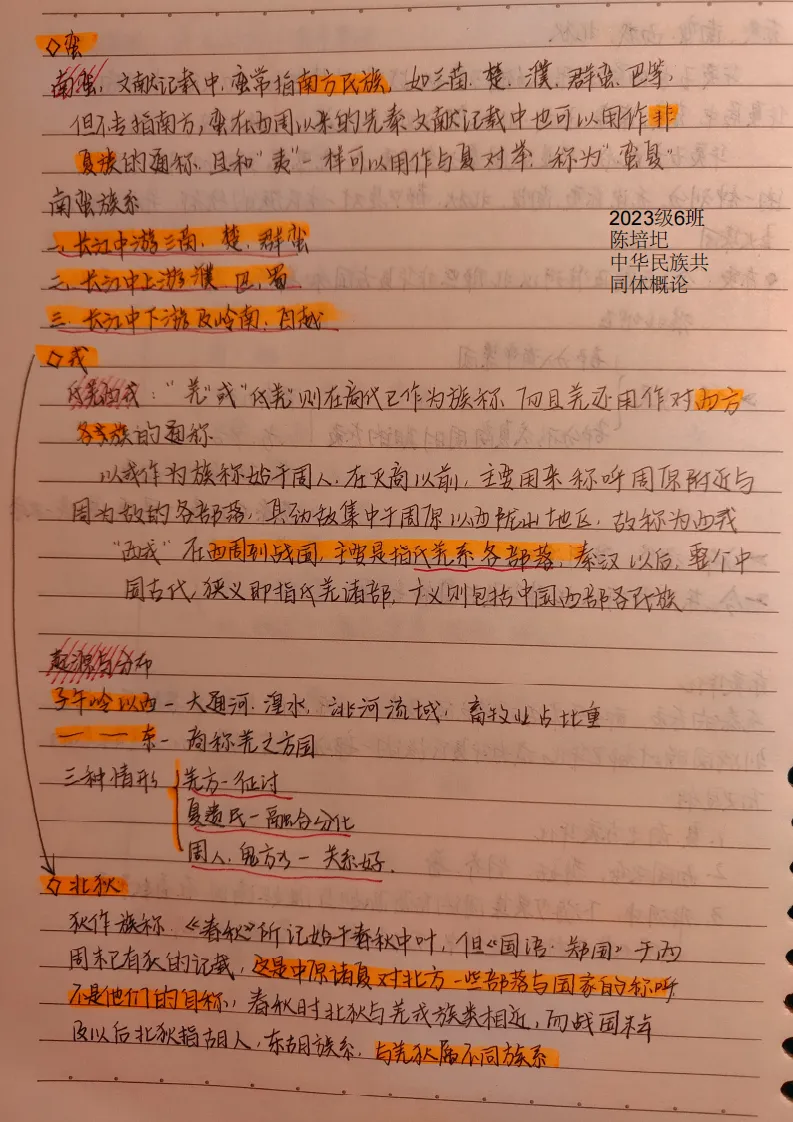 ◇蛮
南蛮，文献记载中，蛮常指南方民族，如三苗、楚、濮、群蛮、巴等，
但不专指南方，蛮在西周以来的先秦文献记载中也可以用作非
夏族的通称，且和“夷”一样可以用作与夏对举，称为“蛮夏”
南蛮族系
一、长江中游三苗、楚、群蛮
二、长江中上游濮、巴、蜀
三、长江中下游及岭南，百越
2023级6班
陈培圯
中华民族共
同体概论
◇戎
氐羌西戎：“羌”或“氐羌”则在商代已作为族称，而且羌还用作对西方
各族的通称
以戎作为族称始于周人，在灭商以前，主要用来称呼周原附近与
周为敌的各部落，其劲敌集中于周原以西陇山地区，故称为西戎
“西戎”在西周到战国，主要是指氐羌系各部落，秦汉以后，整个中
国古代，狭义即指氐羌诸部，广义则包括中国西部各民族
起源与分布
子午岭以西－大通河、湟水、洮河流域，畜牧业占比重
一一东－商称羌之方国
三种情形
羌方－征讨
夏遗民－融合分化
周人、鬼方－关系好.
◇北狄
狄作族称，《春秋》所记始于春秋中叶，但《国语·郑国》于西
周末已有狄的记载，这是中原诸夏对北方一些部落与国家的称呼
不是他们的自称，春秋时北狄与羌戎族类相近，而战国末年
及以后北狄指胡人，东胡族系，与羌狄属不同族系